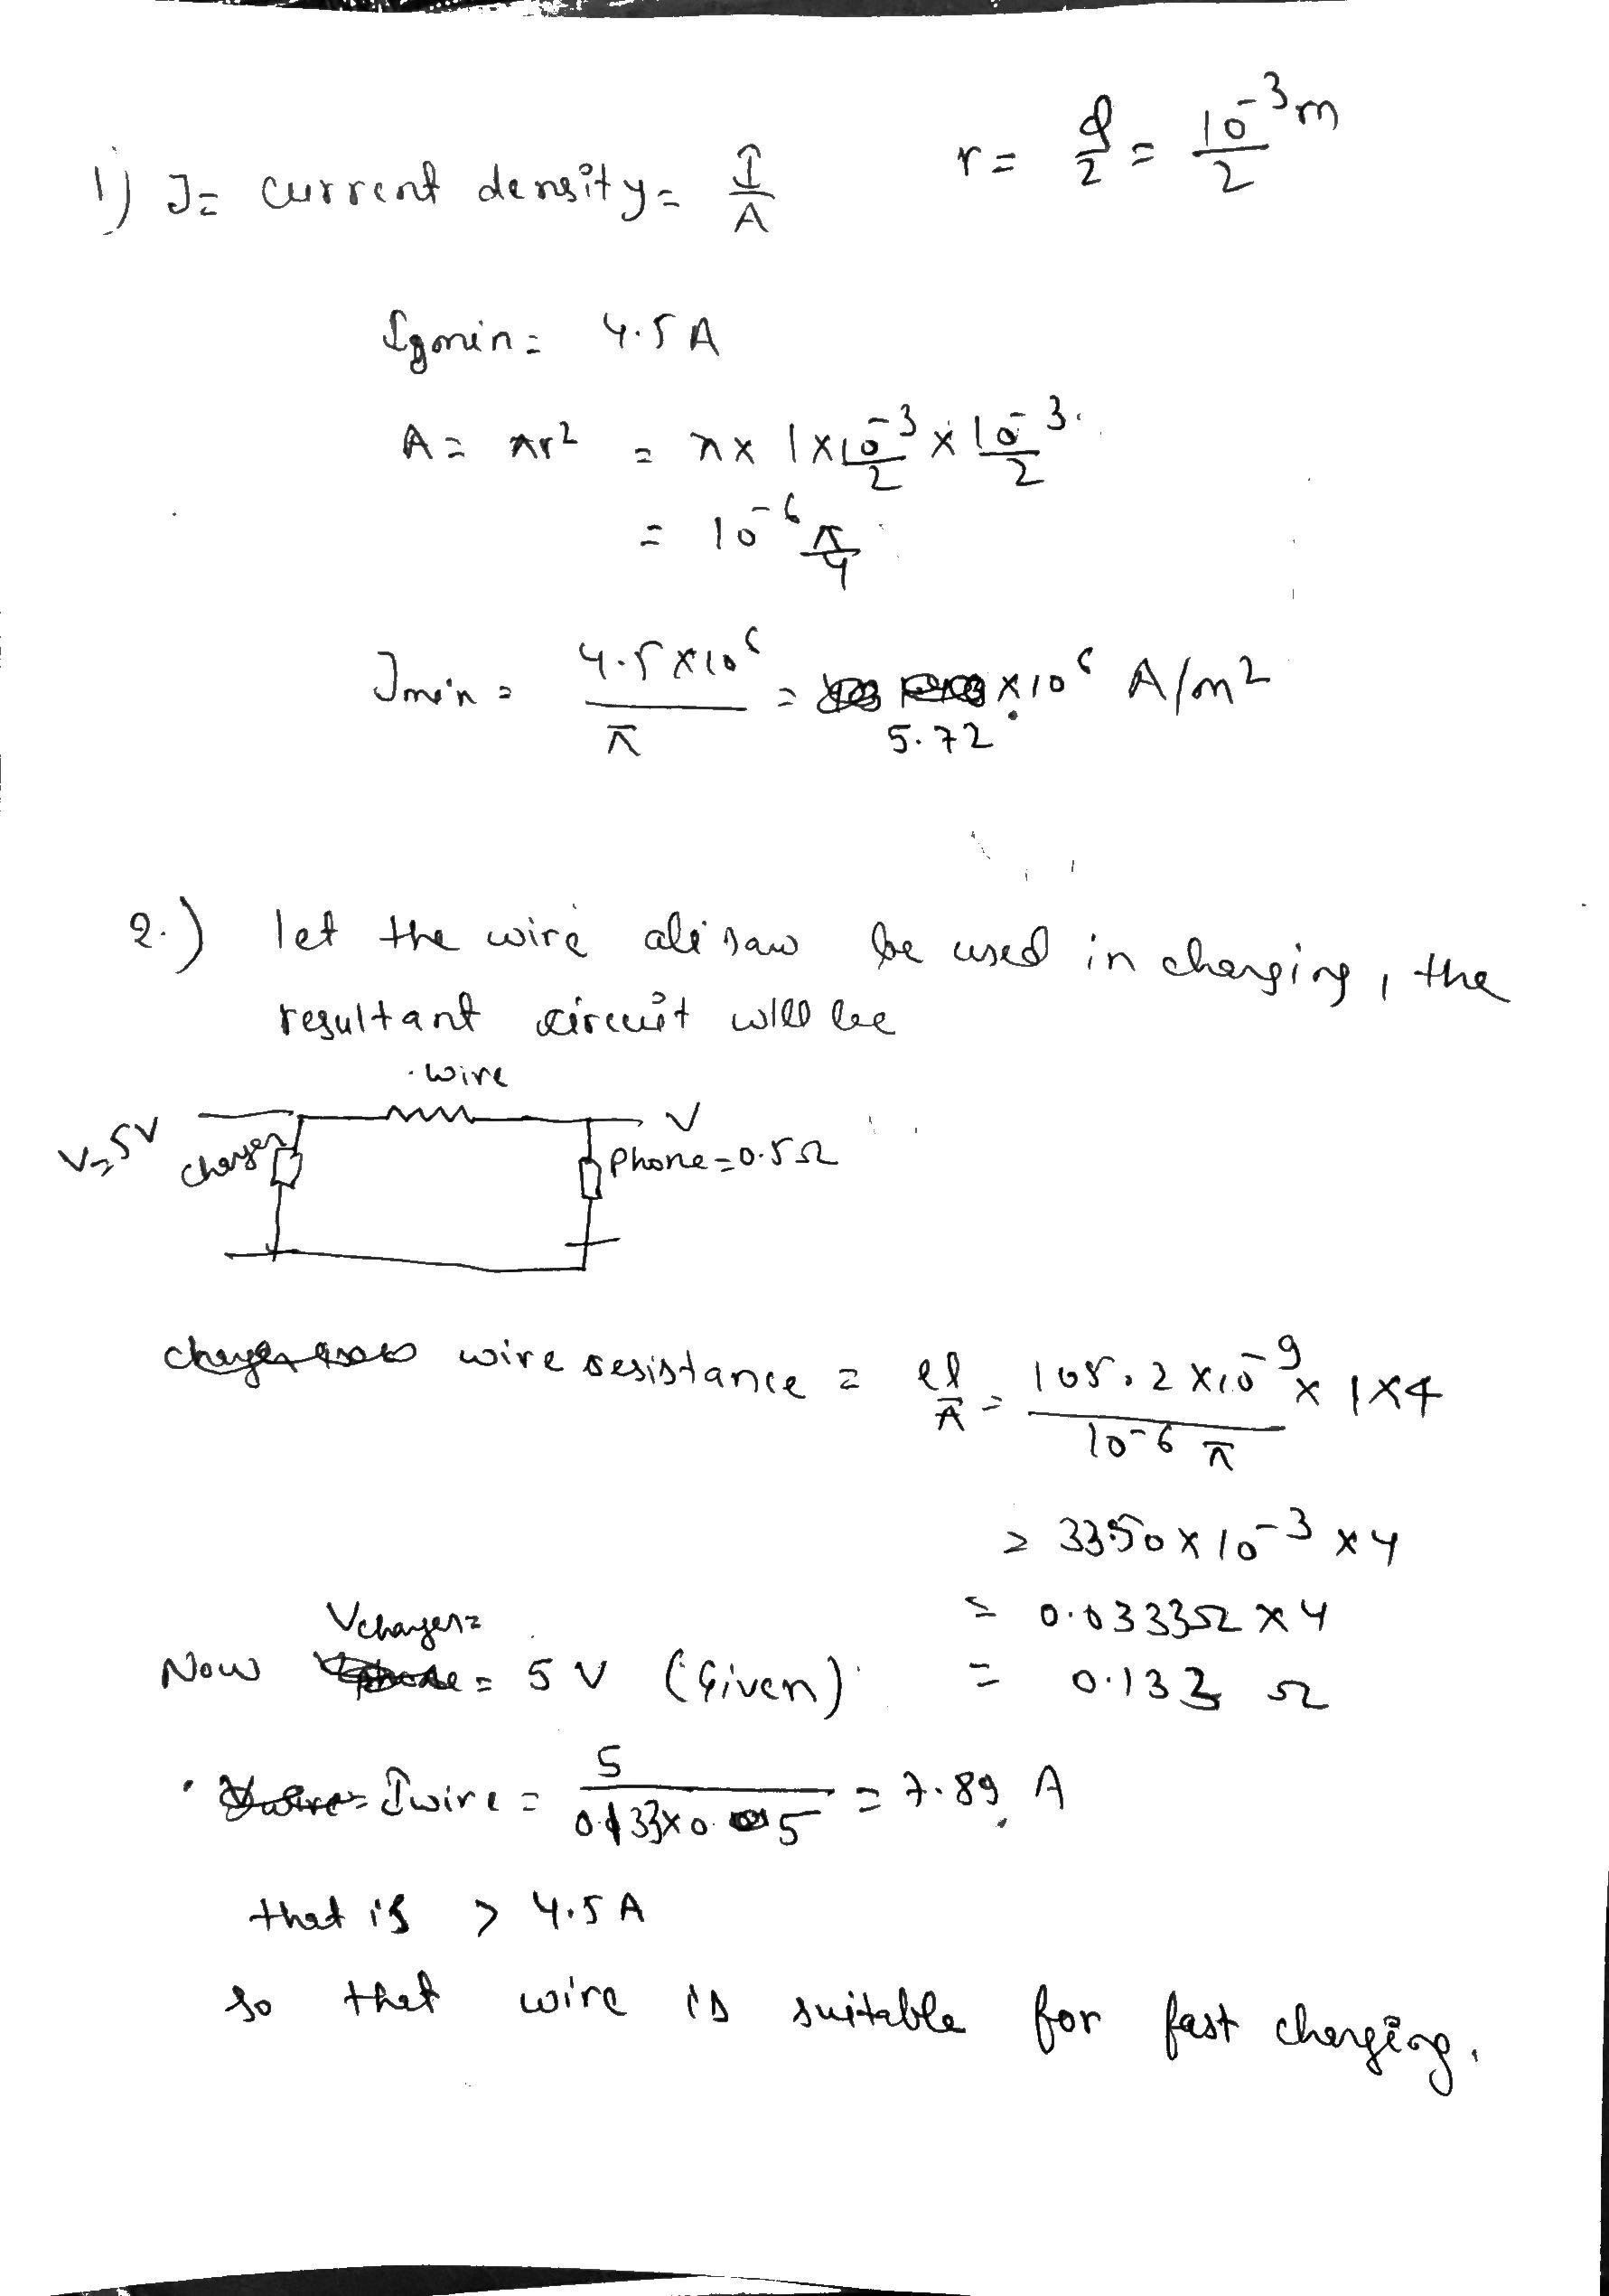 1) J = current density = I/A    r = d/2 = 10^-3 m/2
Igmin = 4.5 A
A = πr² = π × 1×10^-3/2 × 10^-3/2
= 10^-6 π/4
Jmin = 4.5×10^6/π = ×10^6 A/m²
5.72
2.) let the wire ali saw be used in charging, the
resultant circuit will be
wire
V=5V charger V
Phone = 0.5Ω
wire resistance = ρl/A = 105.2 × 10^-9 × 1×4 / 10^-6 π
= 3350 × 10^-3 × 4
= 0.0333Ω × 4
Vcharger=
Now = 5 V (Given) = 0.133 Ω
Iwire = 5/0.133×0.5 = 7.89 A
that is > 4.5 A
so that wire is suitable for fast charging.